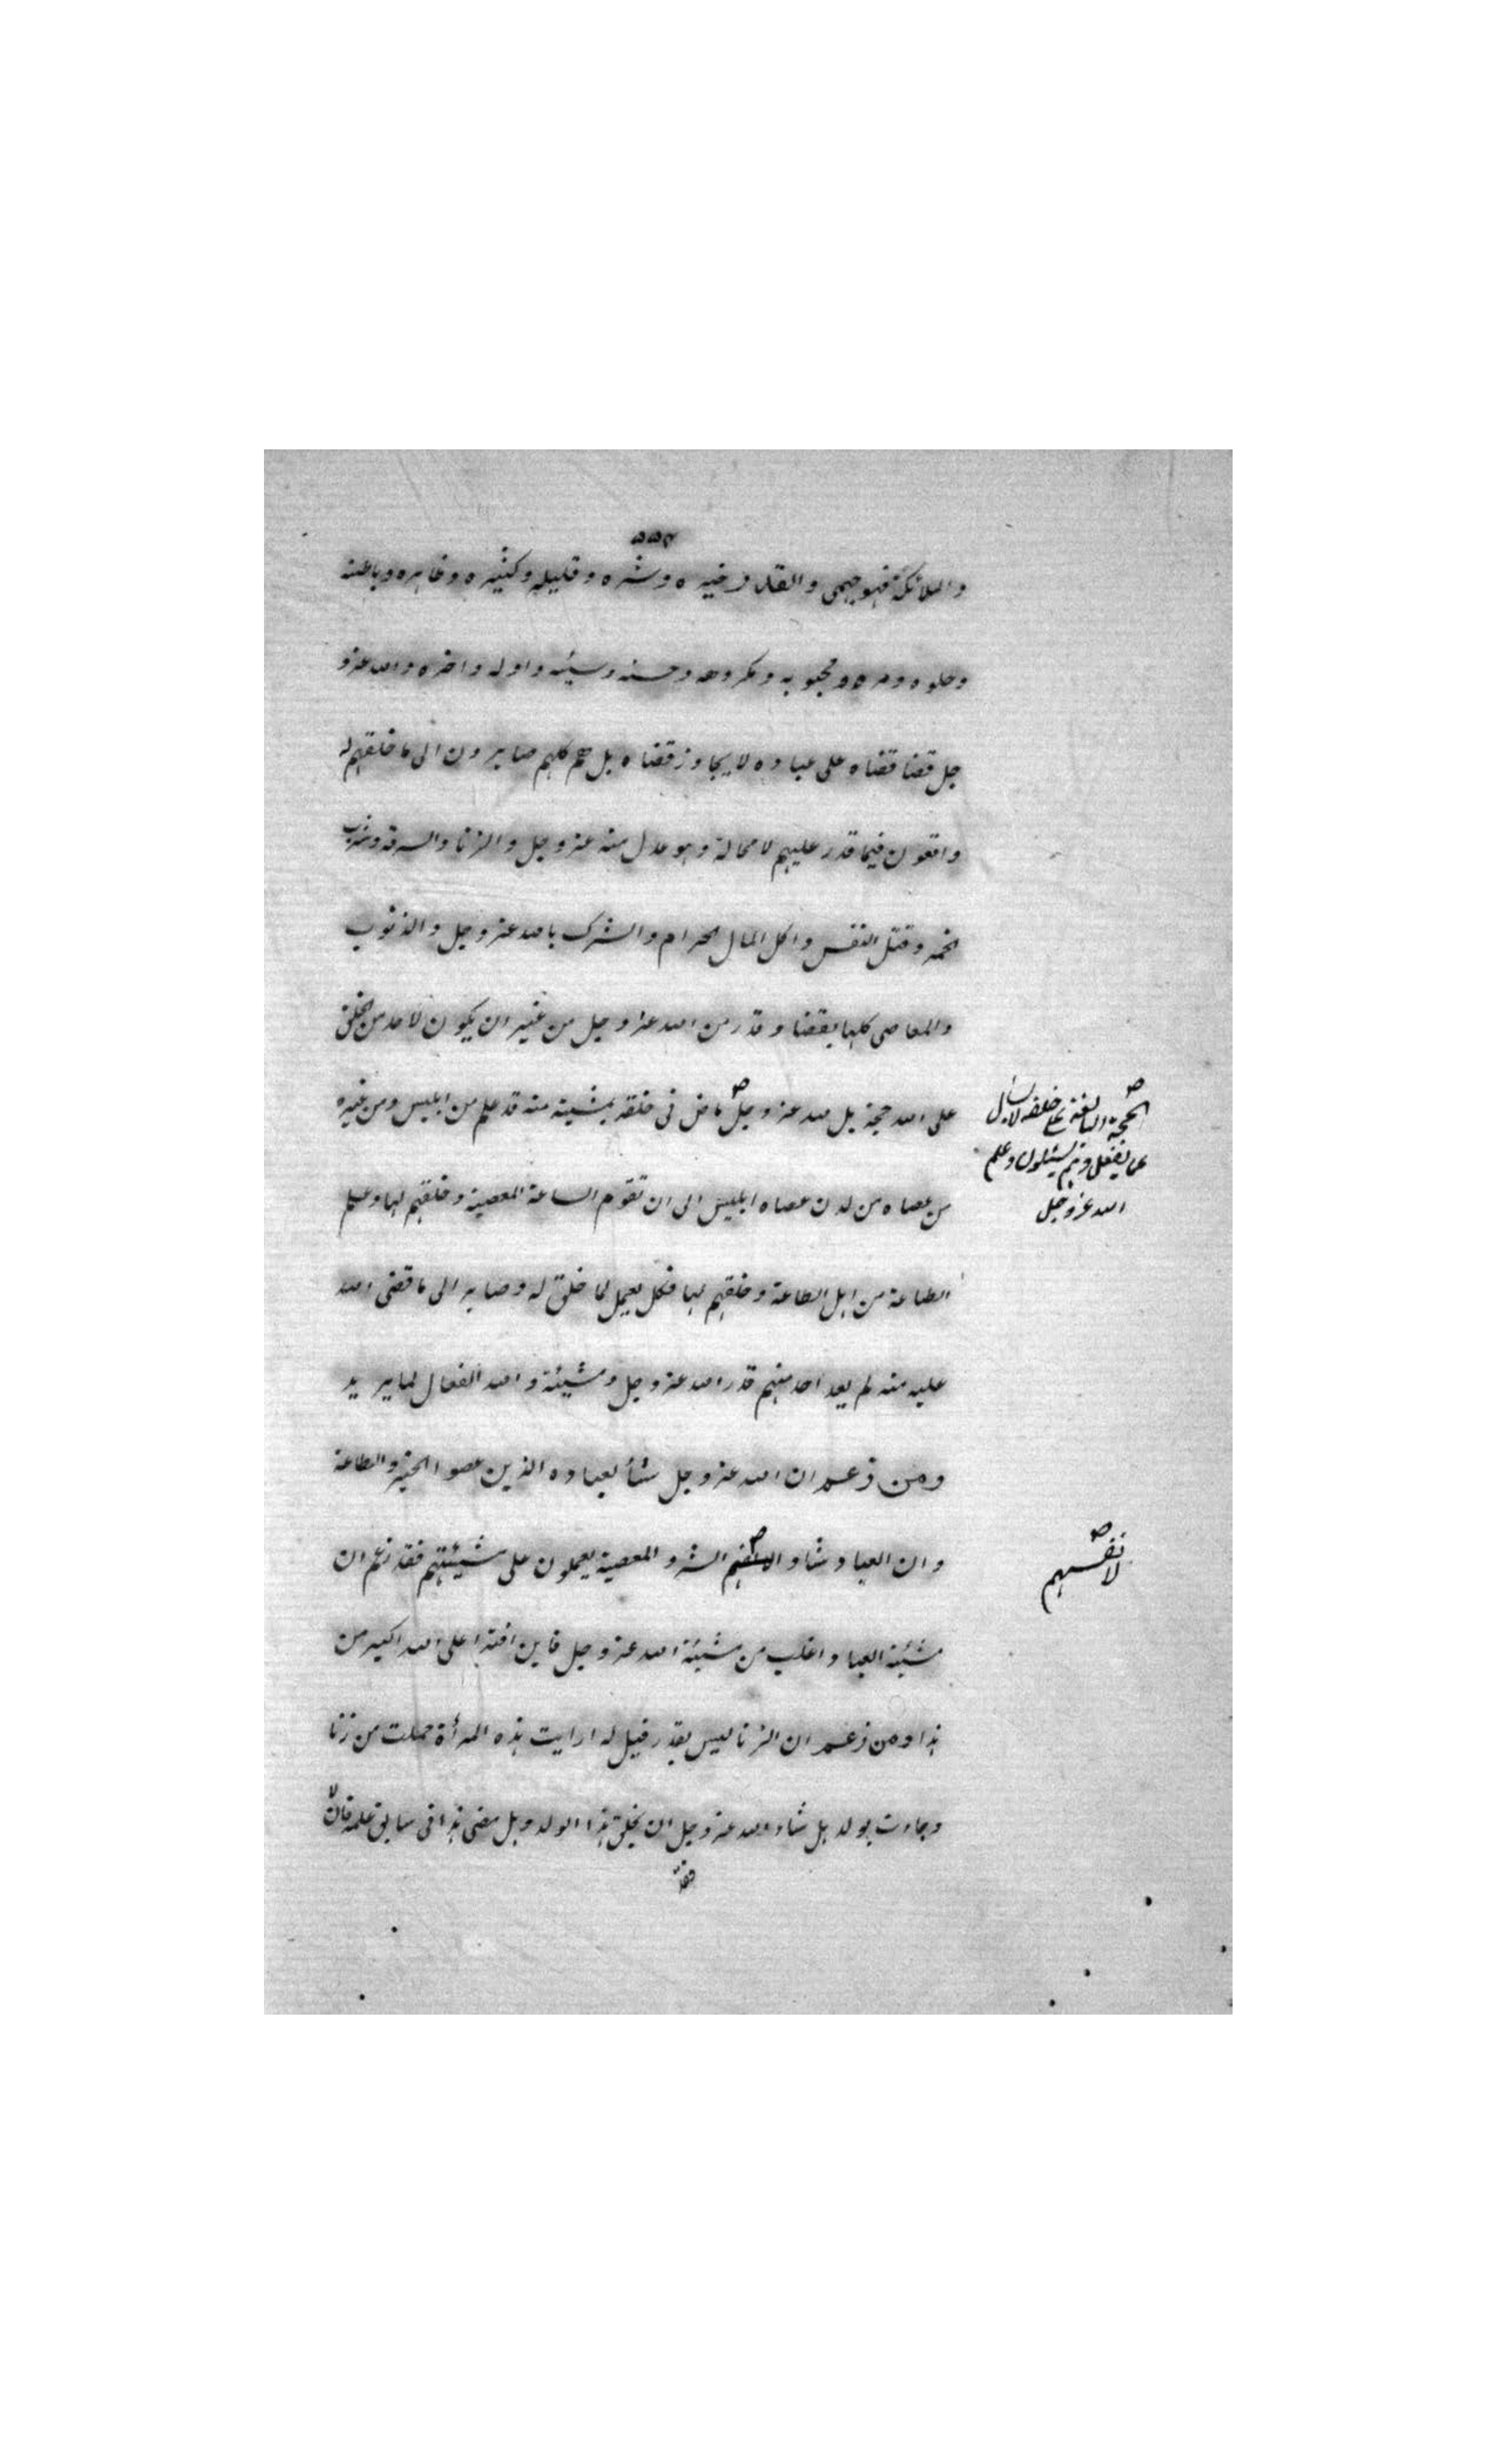 ۵۵۴
والملائكة فهو جهمى والقدر خيره وشره وقليله وكثيره وظاهره وباطنه
وحلوه ومره ومحبوبه ومكروهه وحسنه وسيئه واوله واخره والله عز و
جل قضا قضاه على عباده لا يجاوز قضاه بل هم كلهم صايرون الى ما خلقهم له
واقعون فيما قدر عليهم لا محالة وهو عدل منه عز وجل والزنا والسرقة وشرب
الخمر وقتل النفس واكل المال الحرام والشرك بالله عز وجل والذنوب
والمعاصى كلها بقضا وقدر من الله عز وجل من غير ان يكون لاحد من الخلق
على الله حجة بل لله عز وجل ماض فى خلقه بمشيئة منه قد علم من ابليس ومن غيره
الحجة البالغة على خلقه لا يسأل
عما يفعل وهم يسئلون وعلم
الله عز وجل
من عصاه من لدن عصاه ابليس الى ان تقوم الساعة المعصية وخلقهم لها وعلم
الطاعة من اهل الطاعة وخلقهم لها فكل يعمل لما خلق له وصاير الى ما قضى الله
عليه منه لم يعد احد منهم قدر الله عز وجل ومشيئة والله الفعال لما يريد
ومن زعم ان الله عز وجل شأ لعباده الذين عصوا الخير والطاعة
وان العباد شاو الشر والمعصية يعملون على مشيئتهم فقد زعم ان
لانفسهم
مشيئة العباد اغلب من مشيئة الله عز وجل فاين افترا على الله اكبر من
هذا ومن زعم ان الزنا ليس بقدر قيل له ارايت هذه المرأة حملت من زنا
وجاءت بولد هل شاء الله عز وجل ان يخلق هذا الولد وهل مضى هذا فى سابق علمه فان قال لا
فقد